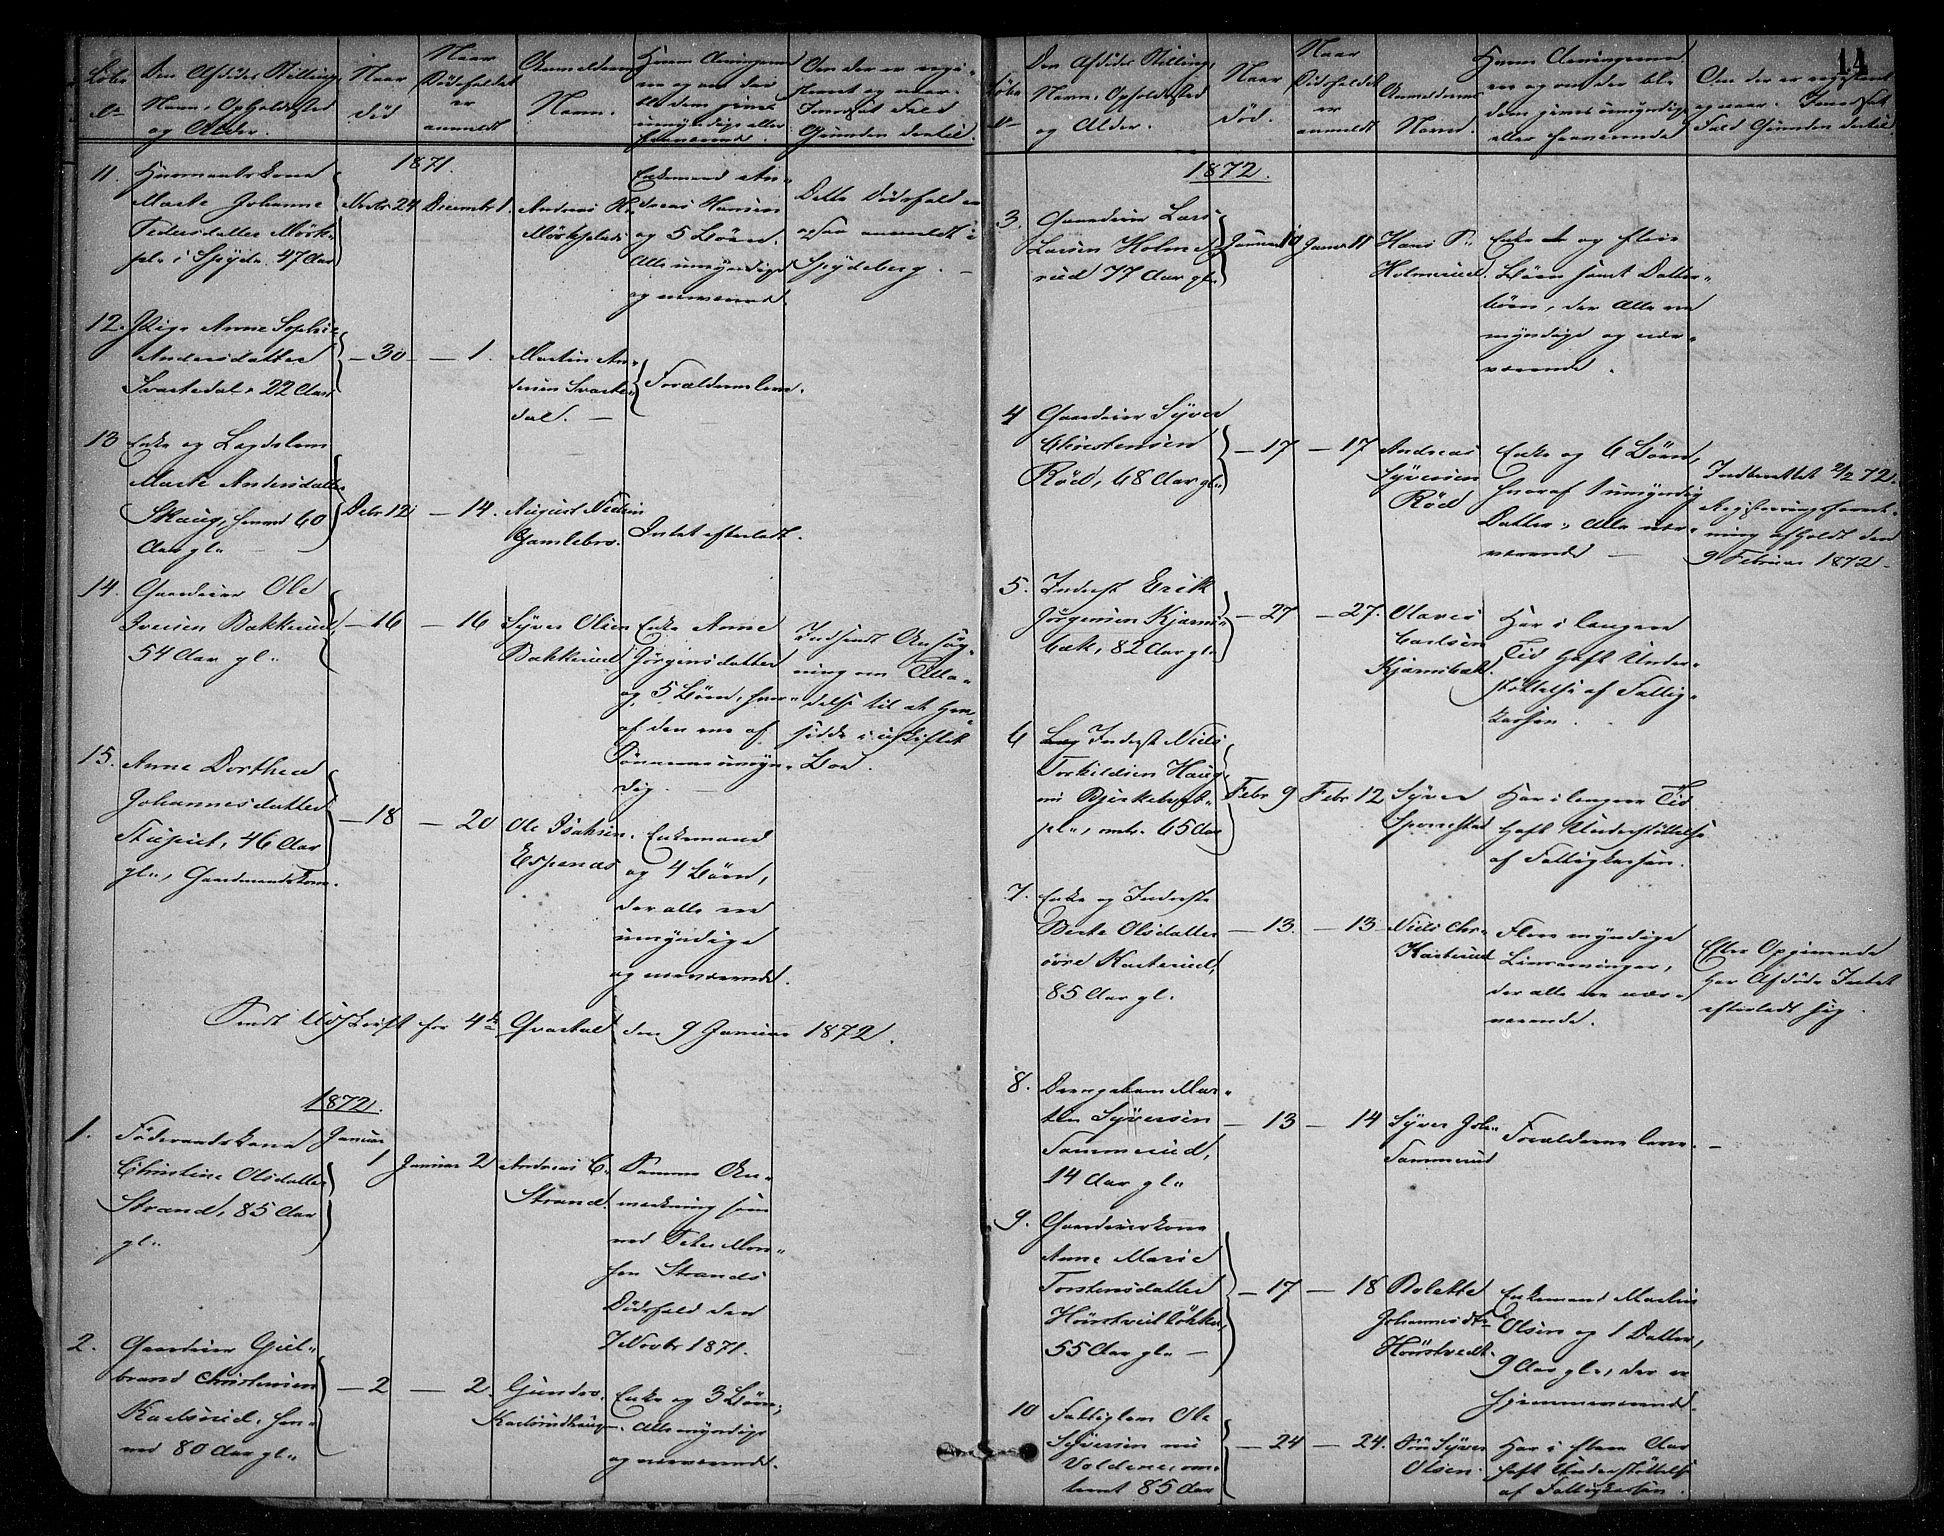 14
Løbe
No
Den Afdødes Stilling,
Navn, Opholdssted
og Alder.
Naar
død
Naar
Dødsfaldet
er
anmeldt
Anmelderens
Navn.
umyndige eller
fraværende.
Grunden dertil.
1871.
11. Huusmandskone
Marte Johanne
Pedersdatter Mørk-
pl. i Spyd. 47 Aar
Novbr 24
Decembr 1.
Andreas H.
Mørkpladsen
Enkemand An-
dreas Hansen
og 5 Børn.
Alle umyndige
og nærværende.
Dette Dødsfald er
ogsaa anmeldt i
Spydeberg. —
12. Pige Anne Sophie
Andersdatter
Svartedal, 22 Aar
— 30 — 1.
Martin An-
dersen Svarte-
dal. —
Forældrene leve.
13 Enke og Lægdslem
Marte Andersdatter
Skaug, henved 60
Aar gl.
Debr 12
— 14.
August
Gamlebro.
Intet efterladt.
14. Gaardeier Ole
Iversen Bakkerud,
54 Aar gl.
— 16 — 16
Syver Olsen
Bakkerud
Enke Anne
Jørgensdatter
og 5 Børn, hvor-
af den ene af
Sønnerne umyn-
dig. —
Indsendt Ansøg-
ning om Tilla-
delse til at hen-
sidde i uskiftet
Bo.
15. Anne Dorthea
Johannesdatter
46 Aar
gl., Gaardmandskone.
— 18 — 20
Ole Isaksen
Espenæs
Enkemand
og 4 Børn,
der alle ere
umyndige
og nærværende.
Sendt Udskrift for 4de Qvartal den 9 Januar 1872.
1872.
1. Føderaadskone
Christine Olsdatter
Strand, 85 Aar
gl.
Januar
1
Januar 2
Andreas C.
Strand.
Samme An-
mærkning som
ved Peder Mon-
sen Strands
Dødsfald den
7 Novbr 1871.
2. Gaardeier Gul-
brand Christensen
Karlsrud, hen-
ved 80 Aar gl.
— 2 — 2.
Gunder
Karlsrudhaug
Enke og 3 Børn,
Alle myndige
og nærværende.
Løbe
No
Den Afdødes Stilling,
Navn, Opholdssted
og Alder.
Naar
død.
Naar
Dødsfaldet
er
anmeldt
Anmelderens
Navn.
eller fraværende
Fald Grunden dertil.
1872.
3. Gaardeier Lars
Larsen Holms-
rud 77 Aar gl.
Januar 10
Januar 11
Hans P.
Holmsrud.
Enke og flere
Børn samt Datter-
børn, der Alle ere
myndige og nær-
værende.
4 Gaardeier Syver
Christensen
Rød, 68 Aar gl.
— 17 — 17
Andreas
Syversen
Rød
Enke og 6 Børn,
hvoraf 1 umyndig
Datter, Alle nær-
værende —
Indberettet 2/2 72.
Registreringsforret-
ning afholdt den
9 Februar 1872 —
5. Inderst Erik
Jørgensen Kjærns-
bæk, 82 Aar gl.
— 27 — 27.
Olaves
Carlsen
Kjærnsbæk.
Har i længere
Tid haft Under-
støttelse af Fattig-
kassen.
6 Inderst Niels
Torkildsen Haug,
65 Aar
Febr 9
Febr 12
Syver
Sponestad
Har i længere Tid
haft Understøttelse
af Fattigkassen.
7. Enke og Inderste
Berte Olsdatter
øvre Kasterud,
85 Aar gl.
— 13. — 13
Niels Chr.
Kasterud
Flere myndige
Livsarvinger,
der alle ere nær-
værende.
Efter Opgivende
har Afdøde Intet
efterladt sig.
8. Drengebarn Mar-
tin Syversen
Tammerud,
14 Aar gl.
— 13 — 14
Syver Joh.
Tammerud
Forældrene leve. —
9. Gaardeierkone
Anne Marie
Torstensdatter
Hørstvedtløkken,
55 Aar gl. —
— 17 — 18
Bolette
Johannesdtr
Hørstvedt.
Enkemand Martin
Olsen og 1 Datter,
9 Aar gl., der er
hjemmeværende.
10 Fattiglem Ole
Syversen
85 Aar
— 24 — 24.
Søn Syver
Olsen.
Har i flere Aar
haft Understøttelse
af Fattigkassen.